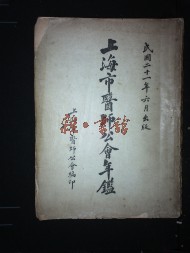 民國二十一年六月出版
上海市醫師公會年鑑
上海市醫師公會編印